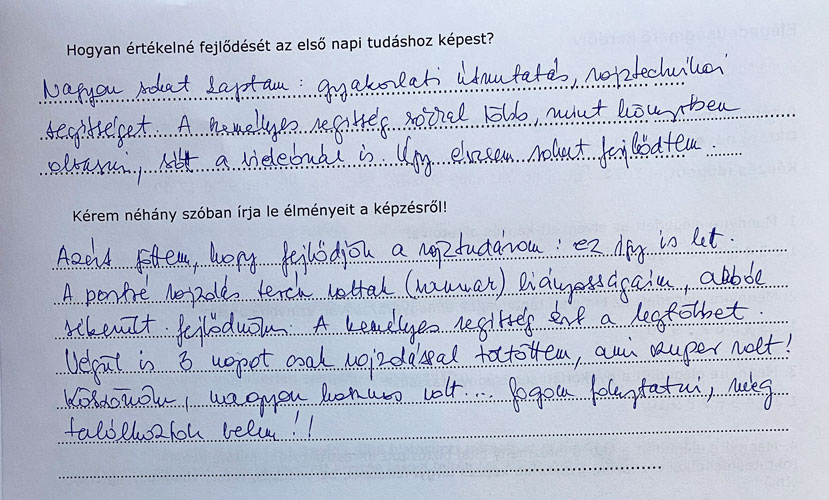 Hogyan értékelné fejlődését az első napi tudáshoz képest?
Nagyon sokat kaptam: gyakorlati útmutatás, rajztechnikai
segítséget. A személyes segítség sokkal több, mint könyvben
olvasni, sőt a videónál is. Úgy érzem sokat fejlődtem.
Kérem néhány szóban írja le élményeit a képzésről!
Azért jöttem, hogy fejlődjön a rajztudásom: ez így is let.
A portré rajzolás terén voltak (vannak) hiányosságaim, abból
sikerült fejlődnöm. A személyes segítség ért a legtöbbet.
Végül is 3 napot csak rajzolással töltöttem, ami szuper volt!
Köszönöm, nagyon hasznos volt... fogom folytatni, még
találkoztok velem!!